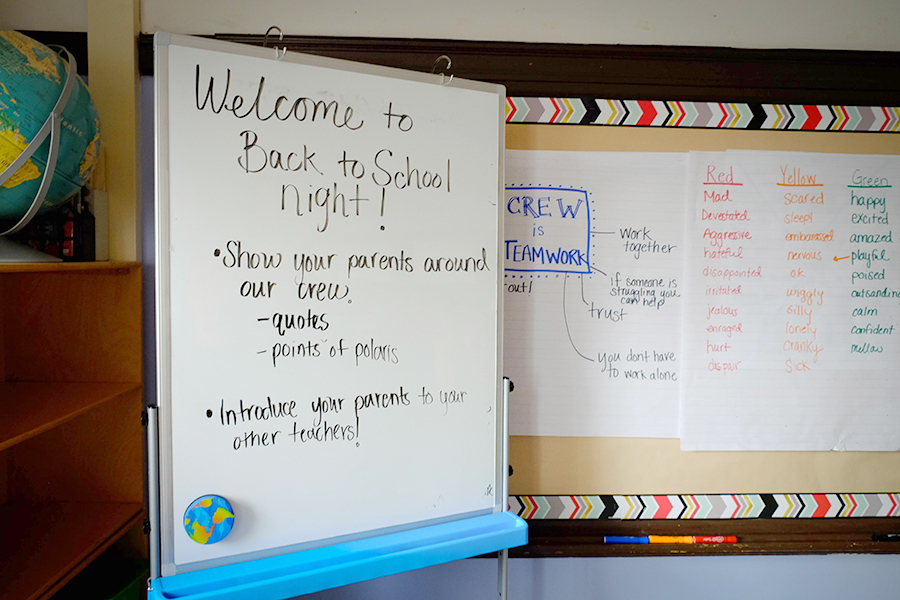 Welcome to
Back to School
night!
• Show your parents around
our crew.
- quotes
- points of polaris
• Introduce your parents to your
other teachers!
CREW
is
TEAMWORK
out!
work
together
if someone is
struggling you
can help
trust
you dont have
to work alone
Red
Mad
Devestated
Aggressive
hateful
disappointed
irritated
jealous
enraged
hurt
dispair
Yellow
scared
sleepy
embarassed
nervous
ok
wiggly
silly
lonely
cranky
sick
Green
happy
excited
amazed
playful
poised
outsandin
calm
confident
mellow